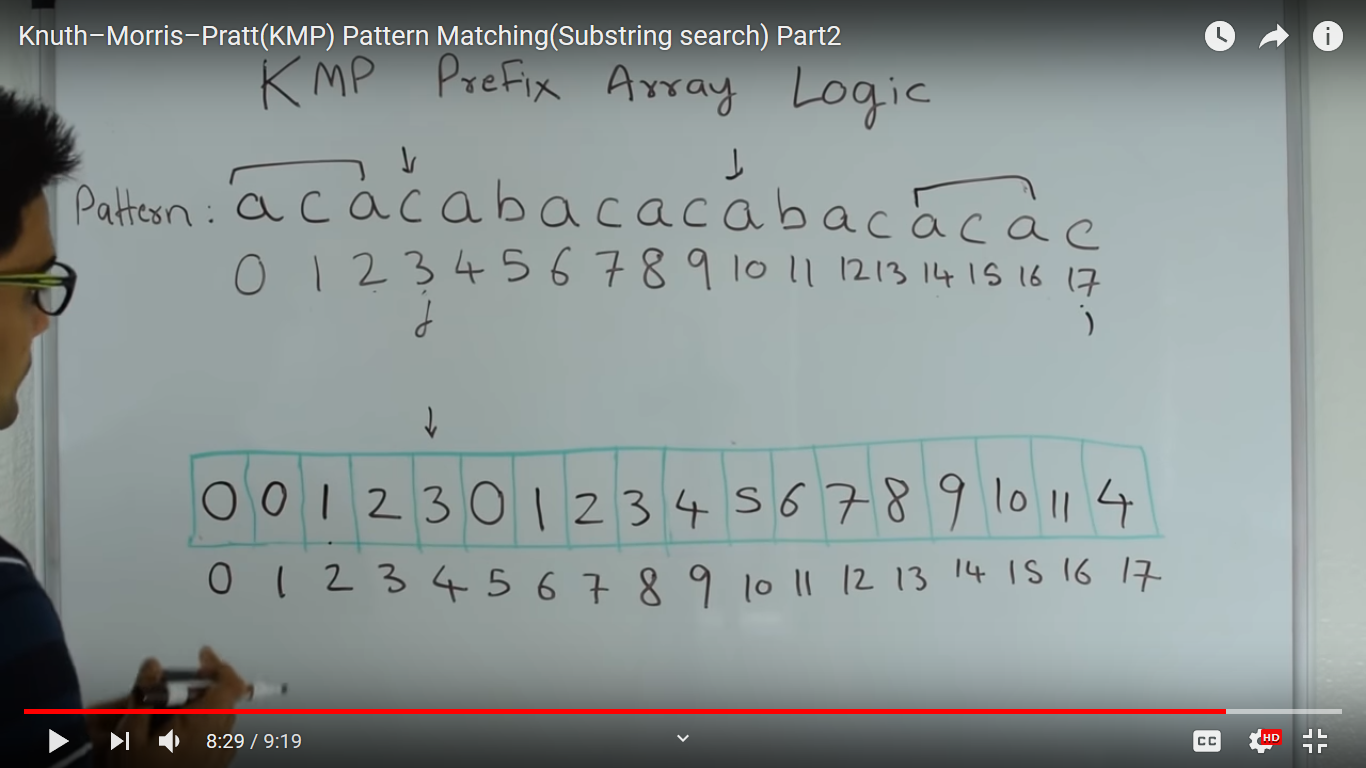 Knuth–Morris–Pratt(KMP) Pattern Matching(Substring search) Part2
KMP Prefix Array Logic
Pattern: a c a c a b a c a c a b a c a c a c
0 1 2 3 4 5 6 7 8 9 10 11 12 13 14 15 16 17
j i
0 0 1 2 3 0 1 2 3 4 5 6 7 8 9 10 11 4
0 1 2 3 4 5 6 7 8 9 10 11 12 13 14 15 16 17
8:29 / 9:19 CC HD